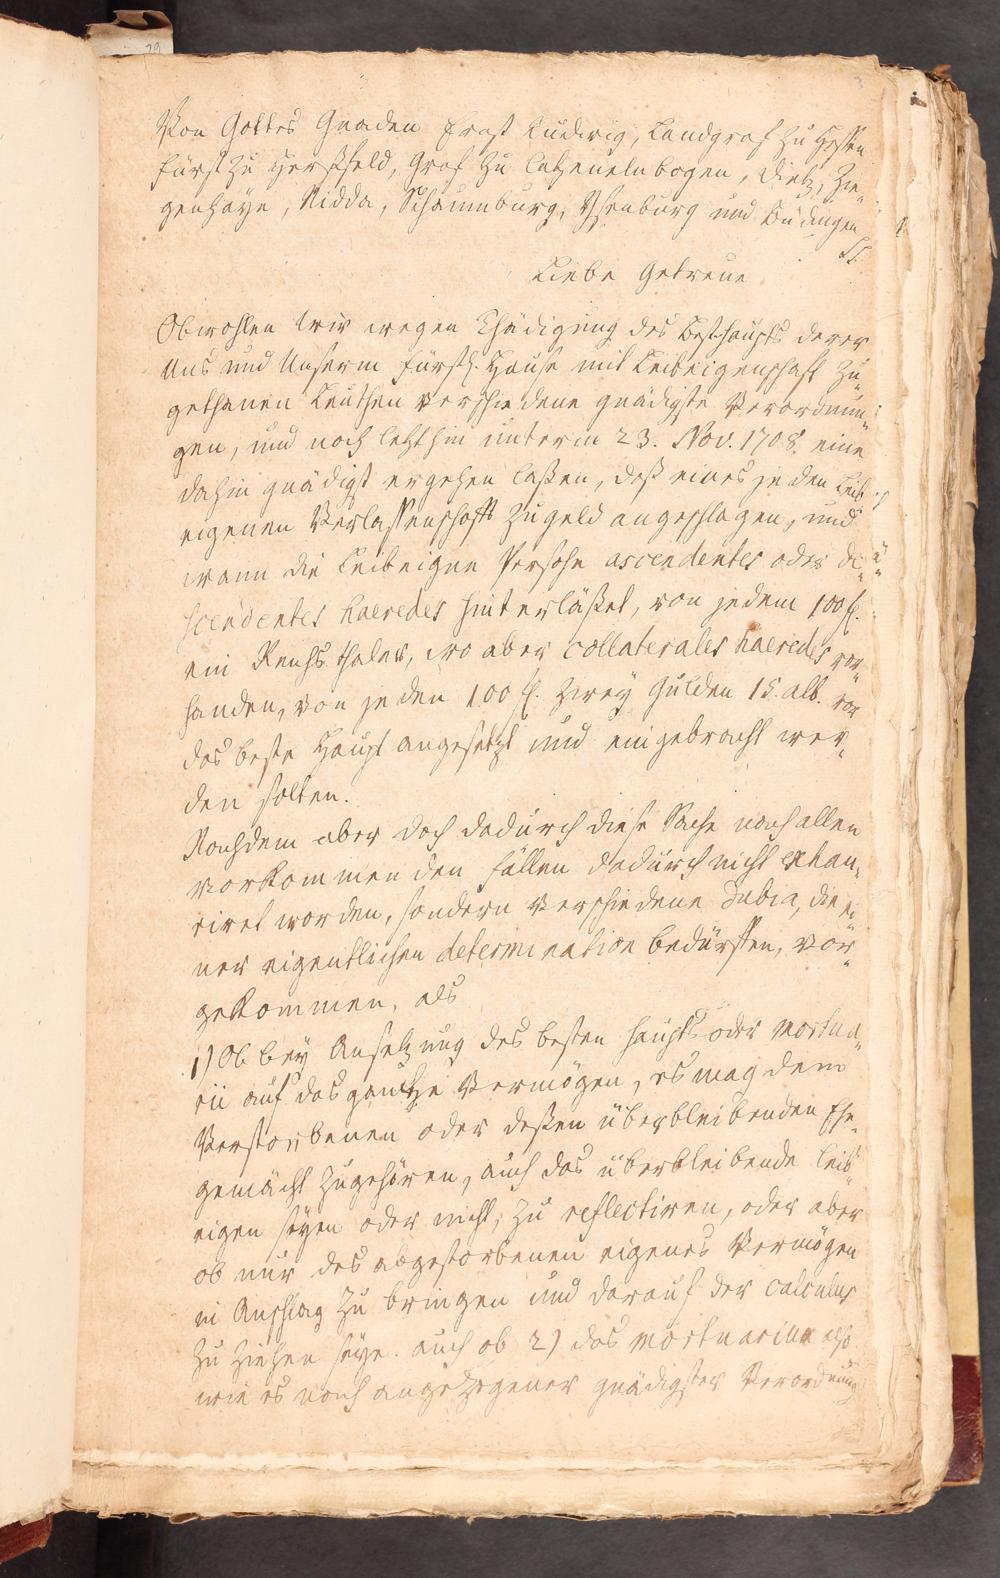 Von Gottes Gnaden Ernst Ludwig, Landgraf zu Hessen
Fürst zu Herßfeld, Graf zu Catzenelnbogen, Dietz, Zie-
genhayn, Nidda, Schaumburg, Ysenburg und Büdingen
Liebe Getreue
Obwohlen wir wegen Thädigung des Besthaupts derer
Uns und Unserm Fürstl. Hause mit Leibeigenschaft zu-
gethanen Leuthen verschiedene gnädigste Verordnun-
gen, und noch letzthin unterm 23. Nov. 1708. eine
dahin gnädigst ergehen laßen, daß eines jeden Leib-
eigenen Verlassenschafft zu geld angeschlagen, und
wann die Leibeigene Persohn ascendentes oder de-
scendentes haeredes hinterläßet, von jedem 100 fl.
ein Reichsthaler, wo aber collaterales haeredes vor-
handen, von jeden 100 fl. zwey Gulden 15 alb. vor
das beste Haupt angesetzt und eingebracht wer-
den solten.
Nachdem aber doch dadurch diese Sache nach allen
vorkommenden fällen dadurch nicht exhau-
riret worden, sondern verschiedene Dubia, die ei-
ner eigentlichen determination bedürffen, vor-
gekommen, als
1) Ob bey Ansetzung des besten haupts oder mortua-
rii auf das gantze Vermögen, es mag dem
Verstorbenen oder deßen überbleibenden Ehe-
gemächt zugehören, auch das überbleibende leib
eigen seyen oder nicht, zu reflectiren, oder aber
ob nur des abgestorbenen eigenes Vermögen
in Anschlag zu bringen und darauf der calculus
zu ziehen seye. auch ob 2) das mortuarium also
wie es nach angezogener gnädigster Verordnung